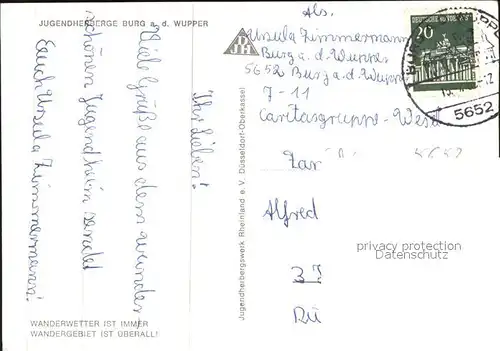 JUGENDHERBERGE BURG a. d. WUPPER
Ihr Lieben!
Viele Grüße aus dem wunder-
schönen Jugendheim sendet
Euch Ursula Zimmermann!
WANDERWETTER IST IMMER
WANDERGEBIET IST ÜBERALL!
JH
Jugendherbergswerk Rheinland e.V. Düsseldorf-Oberkassel
Abs.
Ursula Zimmermann
Burg a.d. Wupper
5652 Burg a.d. Wupp
7-11
Caritasgruppe-West
DEUTSCHE BUNDESPOST
20
5652
Alfred
37
privacy protection
Datenschutz